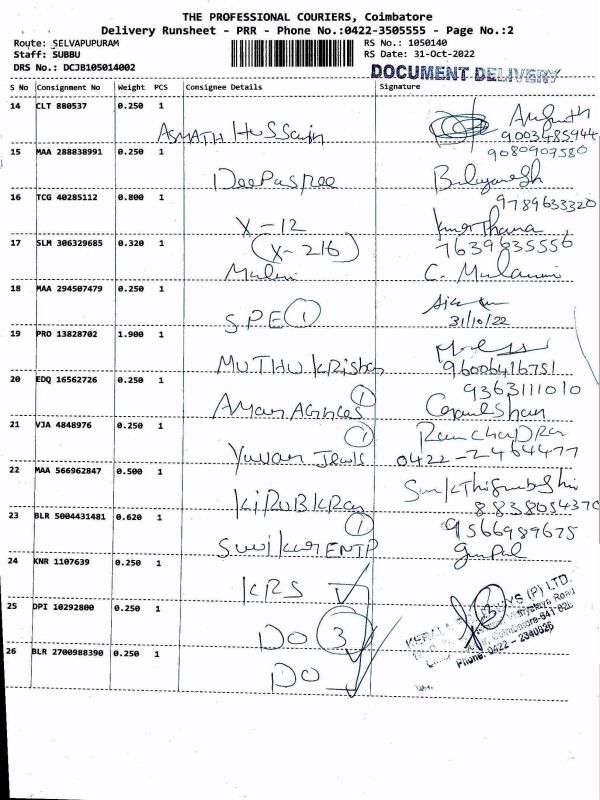 THE PROFESSIONAL COURIERS, Coimbatore
Delivery Runsheet - PRR - Phone No.:0422-3505555 - Page No.:2
Route: SELVAPUPURAM
RS No.: 1050140
Staff: SUBBU
RS Date: 31-Oct-2022
DRS No.: DCJB105014002
DOCUMENT DELIVERY
S No Consignment No Weight PCS Consignee Details Signature
14 CLT 880537 0.250 1
ASMATH HUSSAIN
9003485944
15 MAA 288838991 0.250 1
9080907580
DeePasree
16 TCG 40285112 0.800 1
9789633320
X-12
17 SLM 306329685 0.320 1
(X-216)
7639635556
Malini
18 MAA 294507479 0.250 1
SPE 1
31/10/22
19 PRO 13828702 1.900 1
MUTHU Krishn
96006416751
20 EDQ 16562726 0.250 1
9363111010
1
21 VJA 4848976 0.250 1
1
RamchaNDRan
Yuvan Jewls
0422-2464477
22 MAA 566962847 0.500 1
8838054370
23 BLR 5004431481 0.620 1
1
9566989675
24 KNR 1107639 0.250 1
KRS
25 DPI 10292800 0.250 1
DO 3
Coimbatore-641 026
Phone: 0422 - 2340026
26 BLR 2700988390 0.250 1
DO